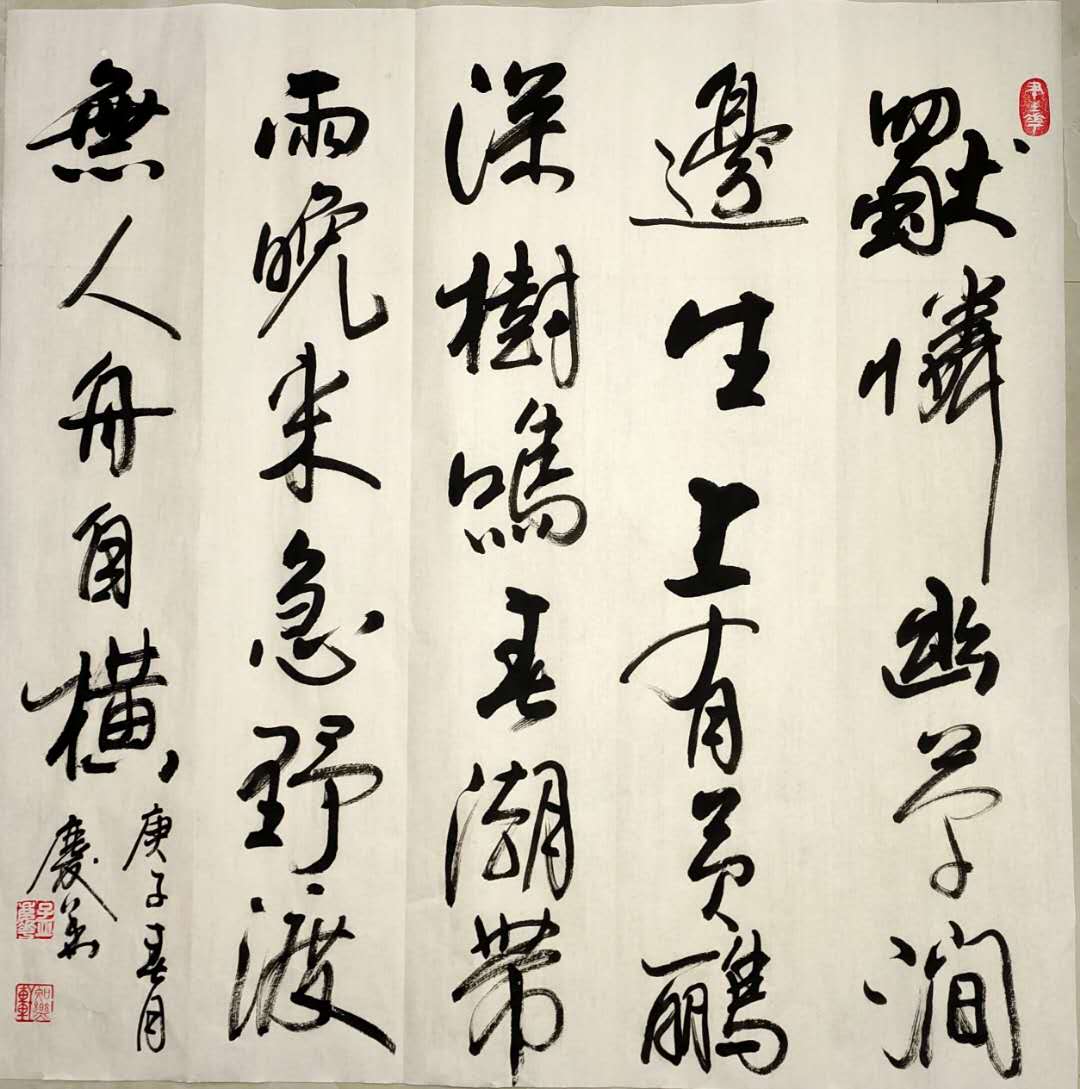 獨憐幽草澗
邊生上有黄鸝
深樹鳴春潮帶
雨晚来急野渡
無人舟自横
庚子春月
慶